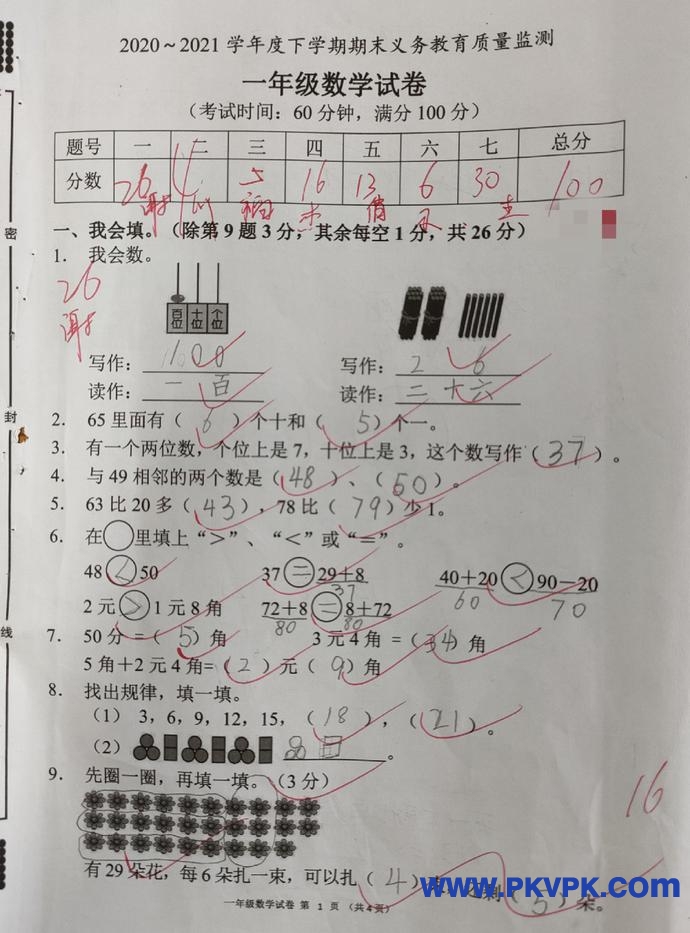 2020～2021 学年度下学期期末义务教育质量监测
一年级数学试卷
（考试时间：60 分钟，满分 100 分）
题号 一 二 三 四 五 六 七 总分
分数 26 4 5 16 13 6 30 100
谢
一、我会填。（除第 9 题 3 分，其余每空 1 分，共 26 分）
26
谢
1. 我会数。
百位 十位 个位
写作： 100 写作： 2 6
读作： 一百 读作： 二十六
2. 65 里面有（ 6 ）个十和（ 5 ）个一。
3. 有一个两位数，个位上是 7，十位上是 3，这个数写作（ 37 ）。
4. 与 49 相邻的两个数是（ 48 ）、（ 50 ）。
5. 63 比 20 多（ 43 ），78 比（ 79 ）少 1。
6. 在○里填上“>”、“<”或“=”。
48 < 50 37 = 29+8 40+20 < 90－20
37 60 70
2 元 > 1 元 8 角 72+8 = 8+72
80 80
7. 50 分 =（ 5 ）角 3 元 4 角 =（ 34 ）角
5 角＋2 元 4 角=（ 2 ）元（ 9 ）角
8. 找出规律，填一填。
（1） 3，6，9，12，15，（ 18 ），（ 21 ）。
（2） 。
9. 先圈一圈，再填一填。（3 分）
16
有 29 朵花，每 6 朵扎一束，可以扎（ 4 ） 还剩（ 5 ）朵。
www.PKVPK.com
一年级数学试卷 第 1 页 （共 4 页）
密
封
线